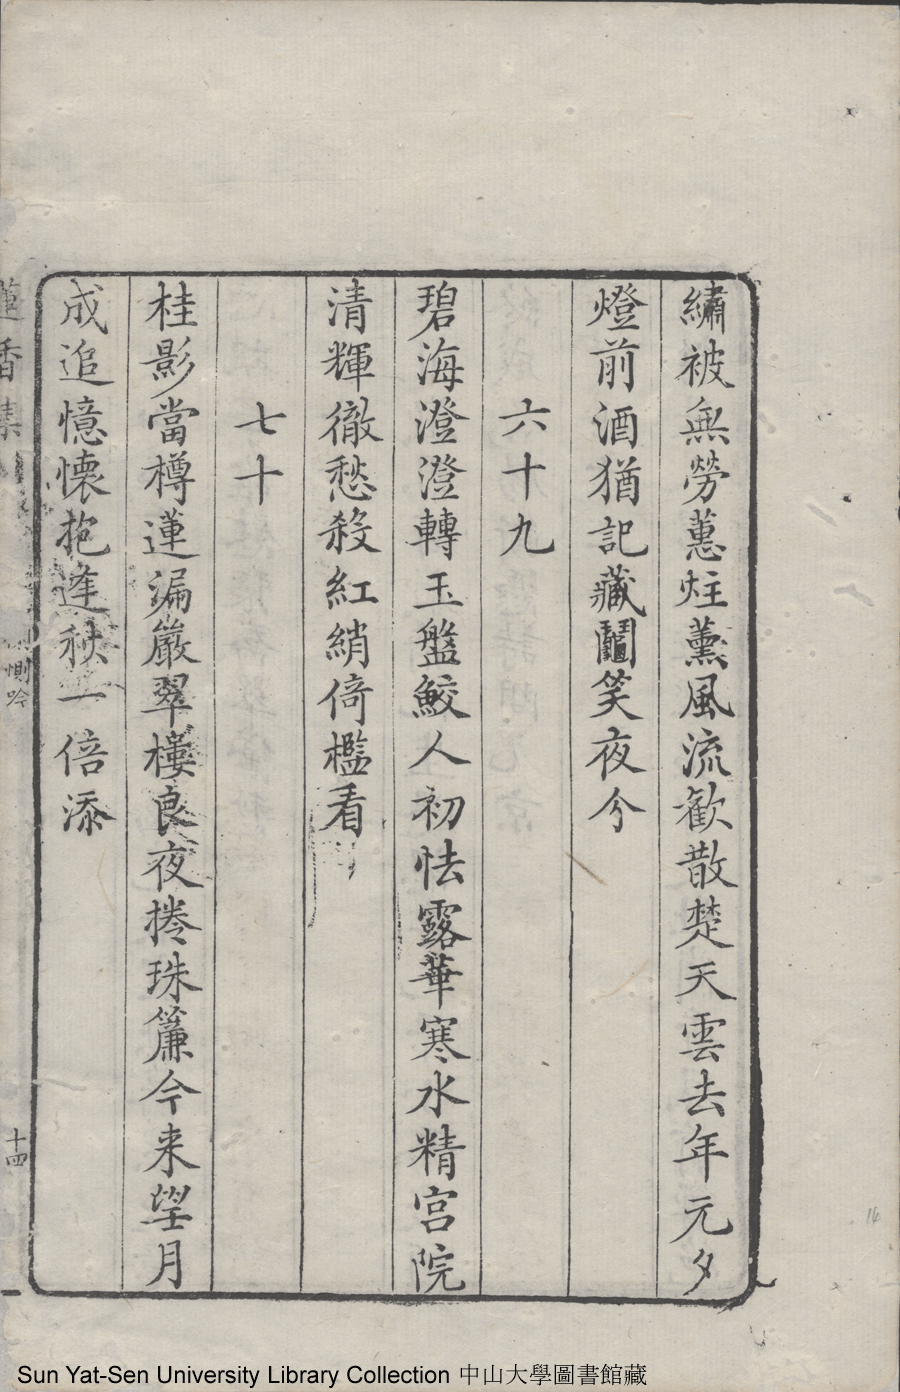 繡被無勞蕙炷薰風流歡散楚天雲去年元夕
燈前酒猶記藏鬮笑夜分
六十九
碧海澄澄轉玉盤鮫人初怯露華寒水精宮院
清輝徹愁殺紅綃倚檻看
七十
桂影當樽蓮漏嚴翠樓良夜捲珠簾今来望月
成追憶懷抱逢秋一倍添
蓮香集
惻吟
十四
14
Sun Yat-Sen University Library Collection 中山大學圖書館藏